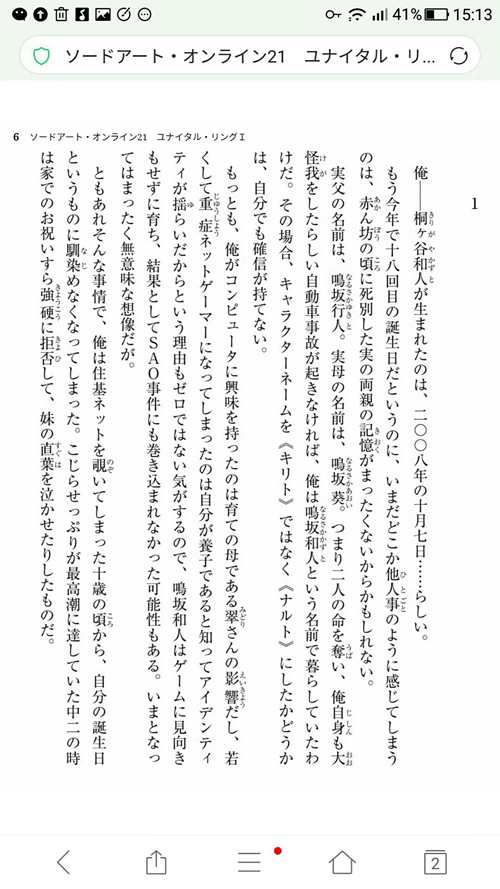 41% 15:13
ソードアート・オンライン21 ユナイタル・リ...
6 ソードアート・オンライン21 ユナイタル・リングⅠ
1
俺――桐ヶ谷和人が生まれたのは、二〇〇八年の十月七日……らしい。
もう今年で十八回目の誕生日だというのに、いまだどこか他人事のように感じてしまう
のは、赤ん坊の頃に死別した実の両親の記憶がまったくないからかもしれない。
実父の名前は、鳴坂行人。実母の名前は、鳴坂葵。つまり二人の命を奪い、俺自身も大
怪我をしたらしい自動車事故が起きなければ、俺は鳴坂和人という名前で暮らしていたわ
けだ。その場合、キャラクターネームを《キリト》ではなく《ナルト》にしたかどうか
は、自分でも確信が持てない。
もっとも、俺がコンピュータに興味を持ったのは育ての母である翠さんの影響だし、若
くして重症ネットゲーマーになってしまったのは自分が養子であると知ってアイデンティ
ティが揺らいだからという理由もゼロではない気がするので、鳴坂和人はゲームに見向き
もせずに育ち、結果としてＳＡＯ事件にも巻き込まれなかった可能性もある。いまとなっ
てはまったく無意味な想像だが。
ともあれそんな事情で、俺は住基ネットを覗いてしまった十歳の頃から、自分の誕生日
というものに馴染めなくなってしまった。こじらせっぷりが最高潮に達していた中二の時
は家でのお祝いすら強硬に拒否して、妹の直葉を泣かせたりしたものだ。
2